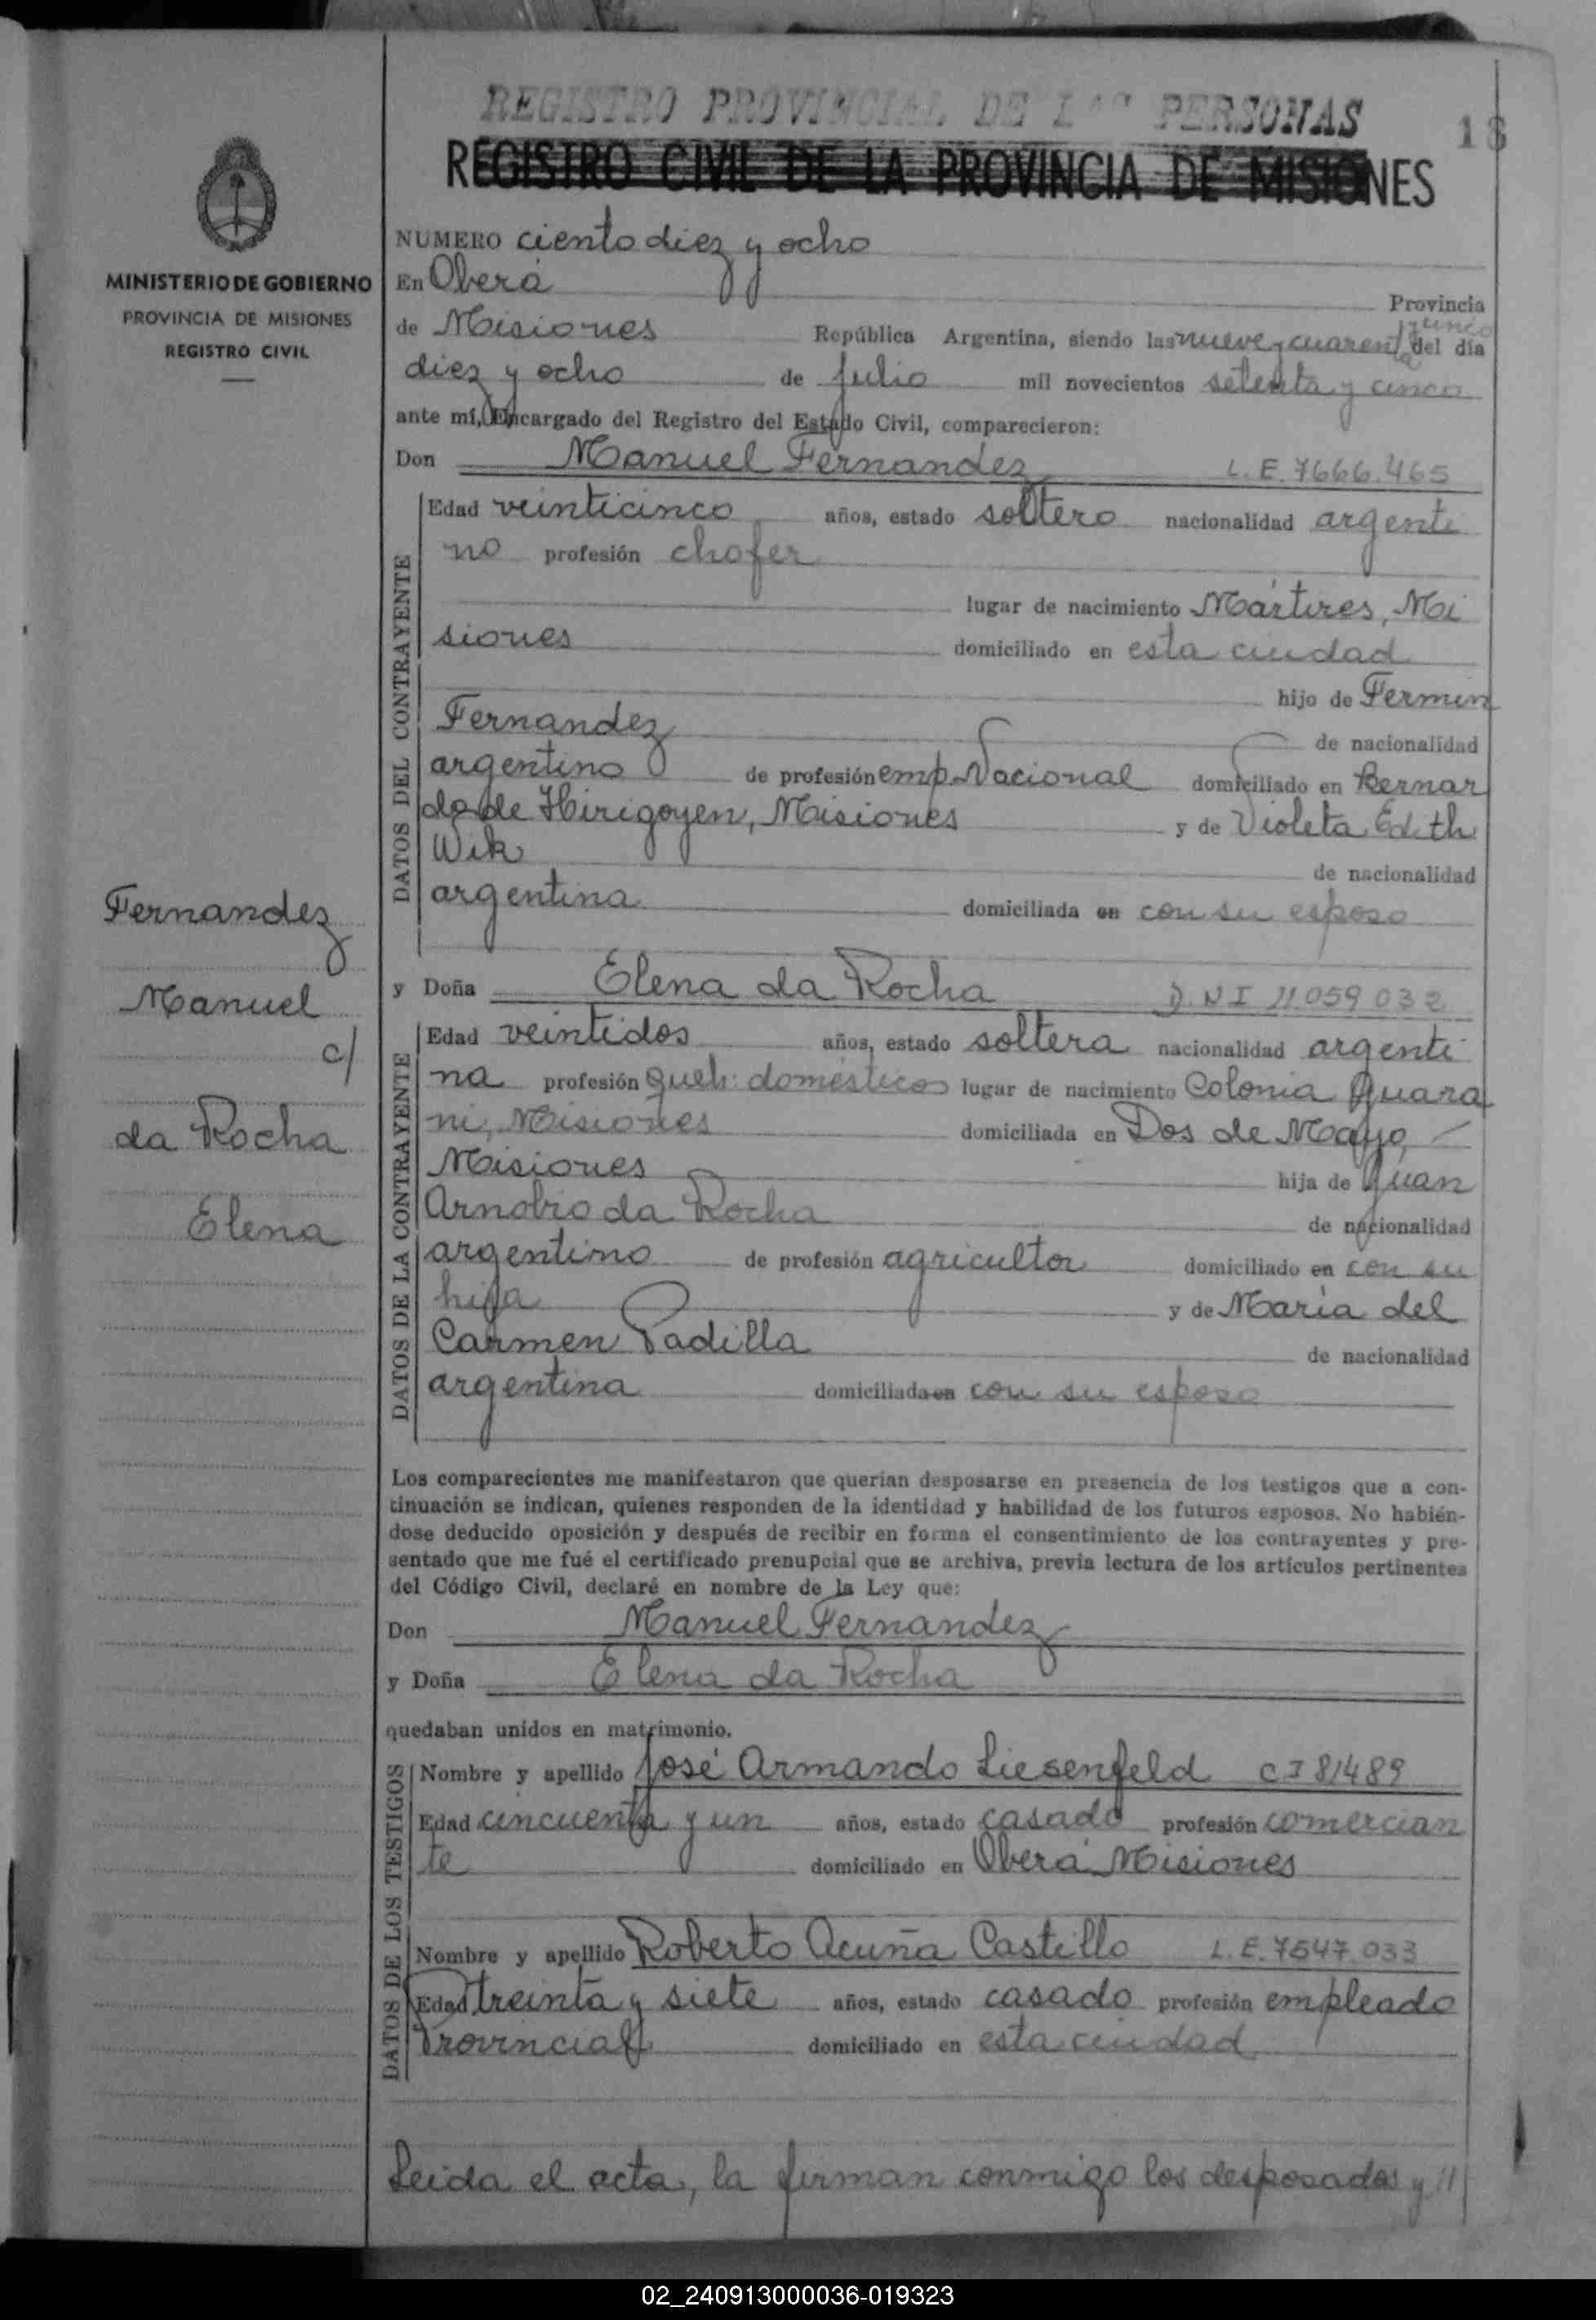 REGISTRO PROVINCIAL DE LAS PERSONAS
18
REGISTRO CIVIL DE LA PROVINCIA DE MISIONES
MINISTERIO DE GOBIERNO
PROVINCIA DE MISIONES
REGISTRO CIVIL
Fernandez
Manuel
c/
da Rocha
Elena
NUMERO ciento diez y ocho
En Oberá Provincia
de Misiones República Argentina, siendo las nueve y cuarenta y cinco del día
diez y ocho de julio mil novecientos setenta y cinco
ante mí, Encargado del Registro del Estado Civil, comparecieron:
Don Manuel Fernandez L.E. 7666.465
DATOS DEL CONTRAYENTE
Edad veinticinco años, estado soltero nacionalidad argenti
no profesión chofer
lugar de nacimiento Mártires, Mi
siones domiciliado en esta ciudad
hijo de Fermin
Fernandez de nacionalidad
argentino de profesión emp. Nacional domiciliado en Bernar
do de Hirigoyen, Misiones y de Violeta Edith
Wik de nacionalidad
argentina domiciliada en con su esposo
y Doña Elena da Rocha D.N.I 11.059.032
DATOS DE LA CONTRAYENTE
Edad veintidos años, estado soltera nacionalidad argenti
na profesión queh. domésticos lugar de nacimiento Colonia Guara
ni, Misiones domiciliada en Dos de Mayo,
Misiones hija de Juan
Arnobio da Rocha de nacionalidad
argentino de profesión agricultor domiciliado en con su
hija y de María del
Carmen Padilla de nacionalidad
argentina domiciliada en con su esposo
Los comparecientes me manifestaron que querían desposarse en presencia de los testigos que a con-
tinuación se indican, quienes responden de la identidad y habilidad de los futuros esposos. No habién-
dose deducido oposición y después de recibir en forma el consentimiento de los contrayentes y pre-
sentado que me fué el certificado prenupcial que se archiva, previa lectura de los artículos pertinentes
del Código Civil, declaré en nombre de la Ley que:
Don Manuel Fernandez
y Doña Elena da Rocha
quedaban unidos en matrimonio.
DATOS DE LOS TESTIGOS
Nombre y apellido José Armando Liesenfeld C I 81489
Edad cincuenta y un años, estado casado profesión comercian
te domiciliado en Oberá Misiones
Nombre y apellido Roberto Acuña Castillo L.E. 7547.033
Edad treinta y siete años, estado casado profesión empleado
Provincial domiciliado en esta ciudad
Leida el acta, la firman conmigo los desposados y //
02_240913000036-019323